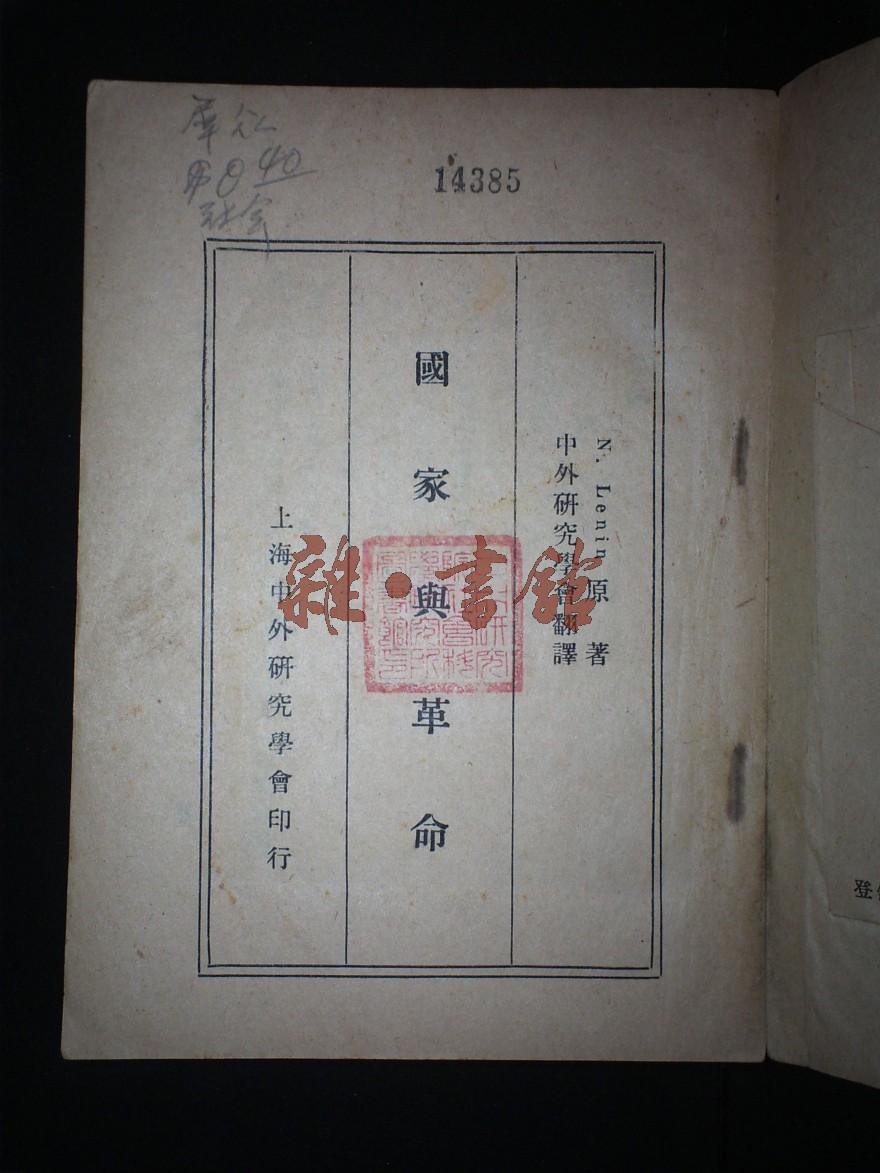 14385
N. Lenin 原著
中外研究學會翻譯
國家與革命
上海中外研究學會印行
雜·書館
社会
40
登